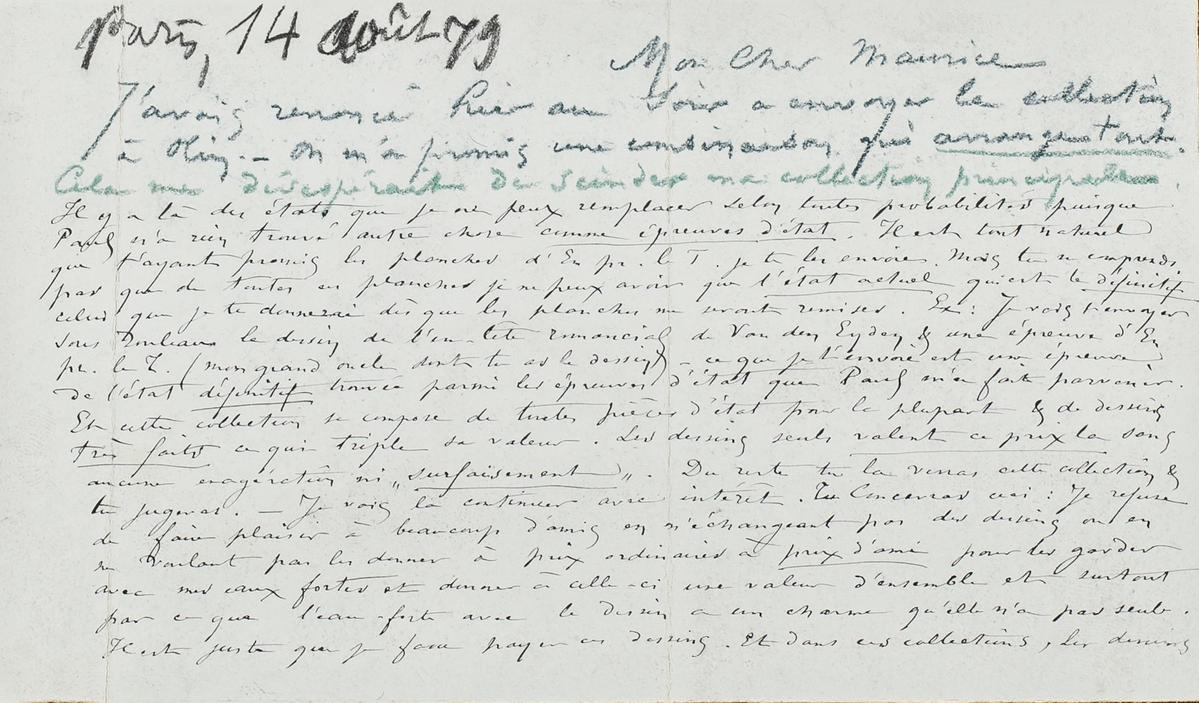 Paris, 14 Août 79
Mon Cher Maurice
J'avais renoncé hier au Soir a envoyer la collection
à Olin. – On m'a promis une combinaison qui arrange tout.
Cela me désespérait de scinder ma collection principale.
Il y a là des états que je ne peux remplacer selon toutes probabilités puisque
Paul n'a rien trouvé autre chose comme épreuves d'état. Il est tout naturel
que t'ayant promis les planches d'En pr. le T. je te les envoie. Mais tu ne comprends
pas que de toutes ces planches je ne peux avoir que l'état actuel qui est le définitif
celui que je te donnerai dès que les planches me seront remises. Ex: Je vais t'envoyer
sous Rouleau le dessin de l'en-tête romancial de Van den Eyden & une épreuve d'En
pr. le T. (mon grand oncle dont tu as le dessin) – ce que je t'envoie est une épreuve
de l'état définitif trouvée parmi les épreuves d'état que Paul m'a fait parvenir.
Et cette collection se compose de toutes pièces d'état pour la plupart & de dessins
très faits ce qui triple sa valeur. Les dessins seuls valent ce prix la sans
aucune exagération ni „surfaisement„. Du reste tu la verras cette collection &
tu jugeras. – Je vais la continuer avec intérêt. Tu Concevras ceci : Je refuse
de faire plaisir à beaucoup d'amis en n'échangeant pas des dessins ou en
ne voulant pas les donner à prix ordinaires à prix d'ami pour les garder
avec mes eaux fortes et donner à celle-ci une valeur d'ensemble et surtout
par ce que l'eau-forte avec le dessin a un charme qu'elle n'a pas seule.
Il est juste que je fasse payer ces dessins. Et dans ces collections, les dessins